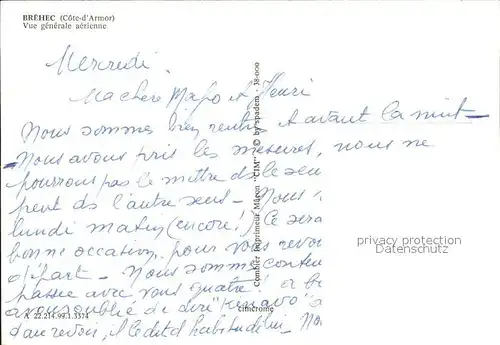 BRÉHEC (Côte-d'Armor)
Vue générale aérienne
Mercredi.
Ma chère Mapo et Henri
Nous sommes bien rentrés et avant la nuit -
Nous avons pris les mesures, nous ne
pourrons pas le mettre ds le sens
peut ds l'autre sens - Nous
lundi matin (encore!) Ce sera
bonne occasion pour vous revoir
départ - Nous sommes content
passée avec vous quatre! or
avons oublié de dire "Kenavo"
d'au revoir, il le dit d'habitude - No
Combier Imprimeur Mâcon "CIM" © by spadem 38-000
cimcrome
A 22.214.99.1.3374
privacy protection
Datenschutz